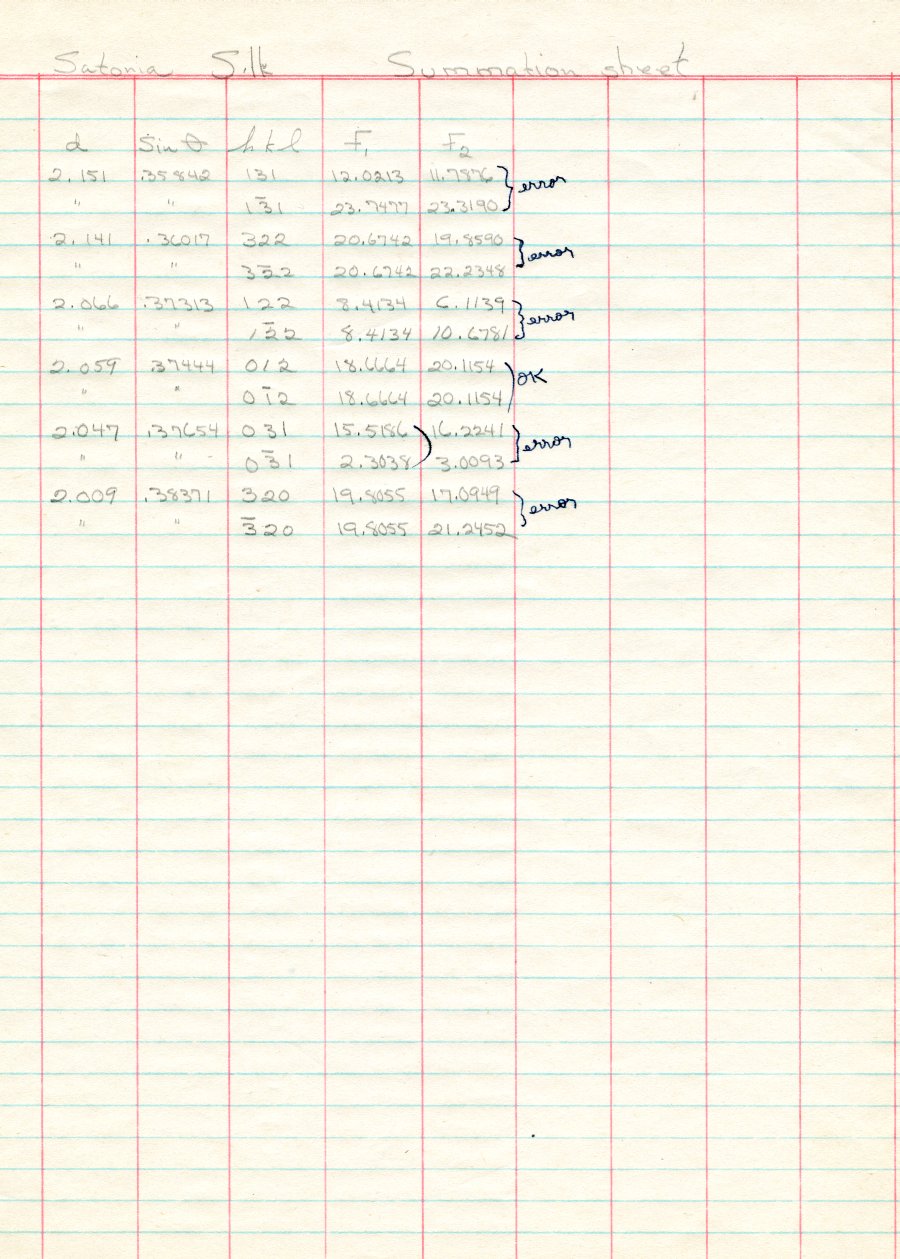 Satonia Silk Summation sheet
d Sin θ h k l F₁ F₂
2.151 .35842 131 12.0213 11.7876 } error
" " 13̅1 23.7477 23.3190
2.141 .36017 322 20.6742 19.8590 } error
" " 32̅2 20.6742 22.2348
2.066 .37313 122 8.4134 6.1139 } error
" " 12̅2 8.4134 10.6781
2.059 .37444 012 18.6664 20.1154 ) OK
" " 01̅2 18.6664 20.1154
2.047 .37654 031 15.5186 ) 16.2241 } error
" " 03̅1 2.3038 3.0093
2.009 .38371 320 19.8055 17.0949 } error
" " 3̅20 19.8055 21.2452